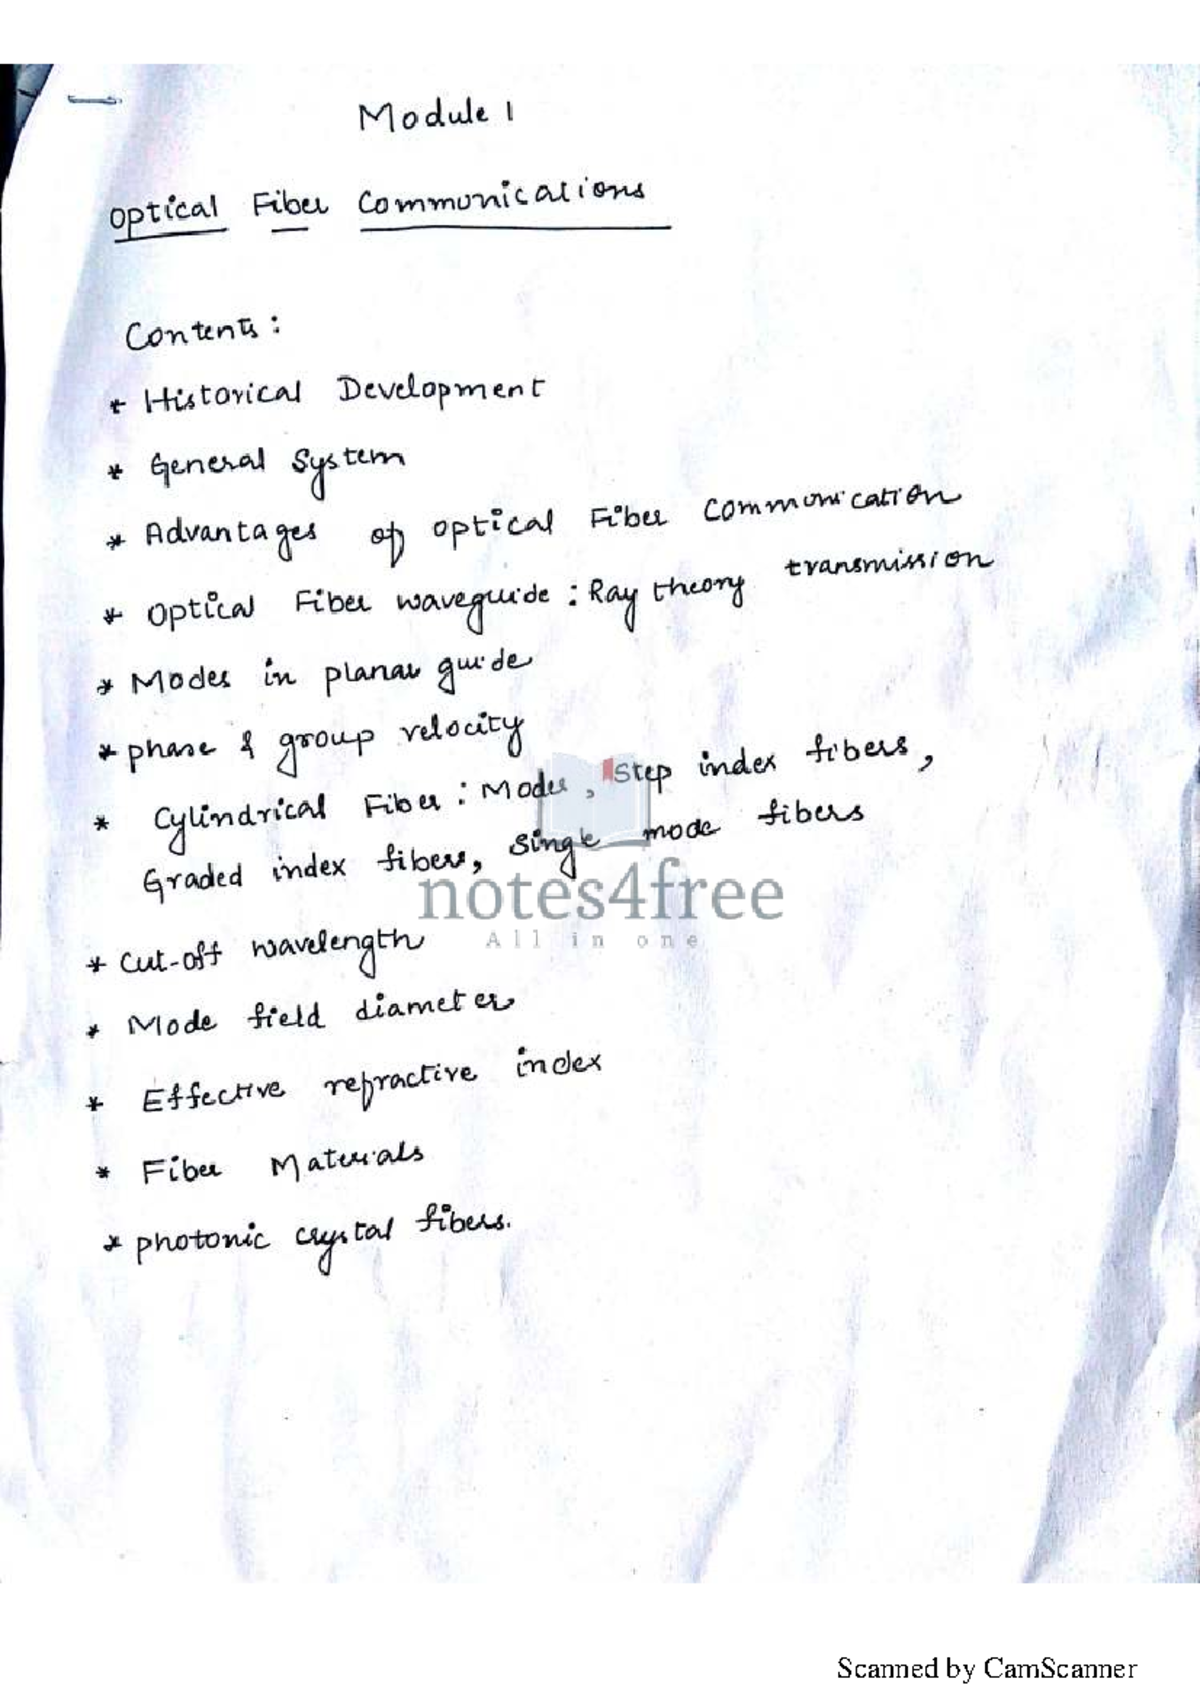 Module 1
Optical Fiber Communications
Contents :
* Historical Development
* General System
* Advantages of optical Fiber Communication
* Optical Fiber waveguide : Ray theory transmission
* Modes in planar guide
* phase & group velocity
* Cylindrical Fiber : Modes, Step index fibers,
Graded index fibers, Single mode fibers
notes4free
All in one
* Cut-off wavelength
* Mode field diameter
* Effective refractive index
* Fiber Materials
* photonic crystal fibers.
Scanned by CamScanner